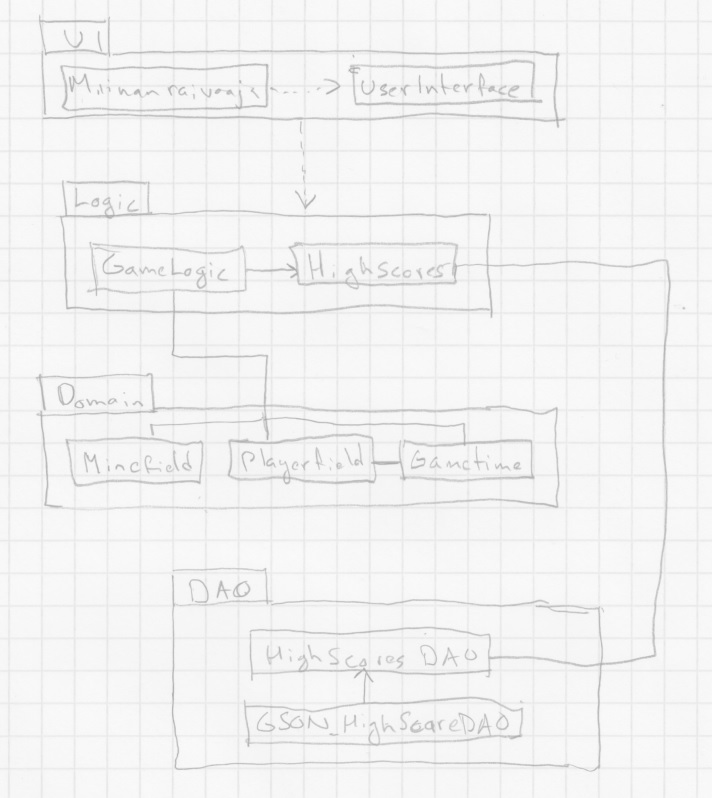 UI
Miinanraivaaja
UserInterface
Logic
GameLogic
HighScores
Domain
Minefield
Playerfield
Gametime
DAO
HighScores DAO
GSON_HighScoreDAO